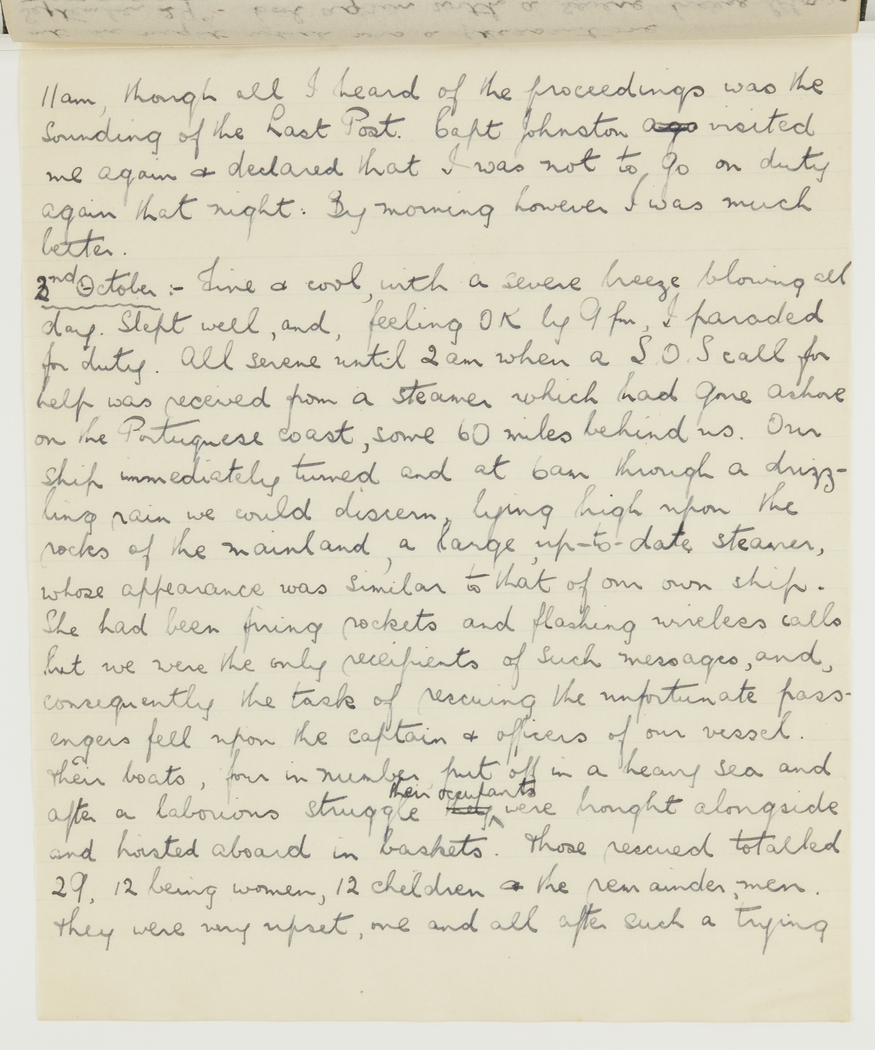 11am, though all I heard of the proceedings was the
sounding of the Last Post. Capt Johnston ago visited
me again & declared that I was not to go on duty
again that night: By morning however I was much
better.
2nd October :- Fine & cool, with a severe breeze blowing all
day. Slept well, and, feeling OK by 9 pm, I paraded
for duty. All serene until 2am when a S.O.S call for
help was received from a steamer which had gone ashore
on the Portuguese coast, some 60 miles behind us. Our
ship immediately turned and at 6am through a drizz-
ling rain we could discern, lying high upon the
rocks of the mainland, a large, up-to-date, steamer,
whose appearance was similar to that of our own ship.
She had been firing rockets and flashing wireless calls
but we were the only recipients of such messages, and,
consequently the task of rescuing the unfortunate pass-
engers fell upon the captain & officers of our vessel.
Their boats, four in number put off in a heavy sea and
their occupants
after a laborious struggle they were brought alongside
and hoisted aboard in baskets. Those rescued totalled
29, 12 being women, 12 children & the remainder, men.
They were very upset, one and all after such a trying